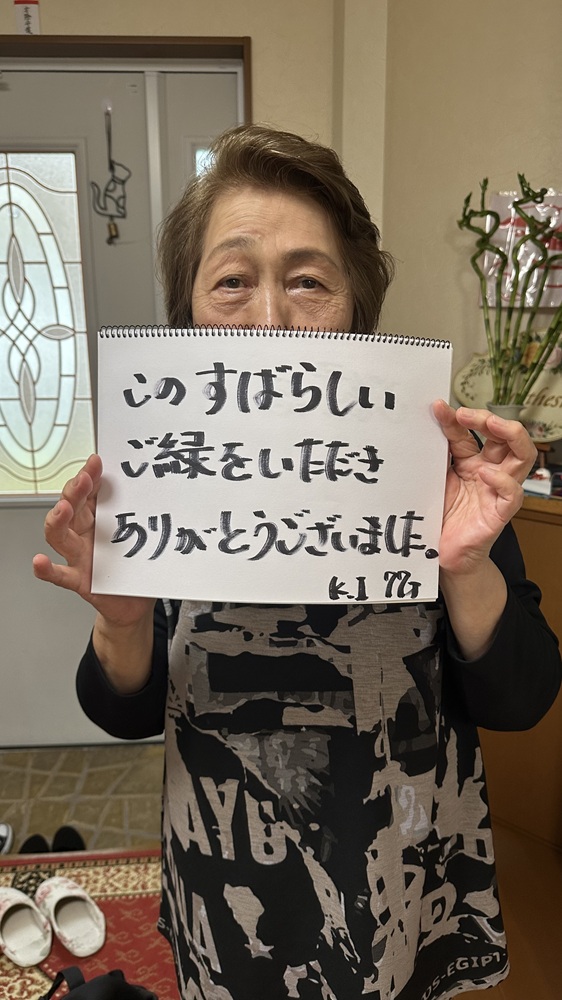 このすばらしい
ご緑をいただき
ありがとうございました。
K.I 77才